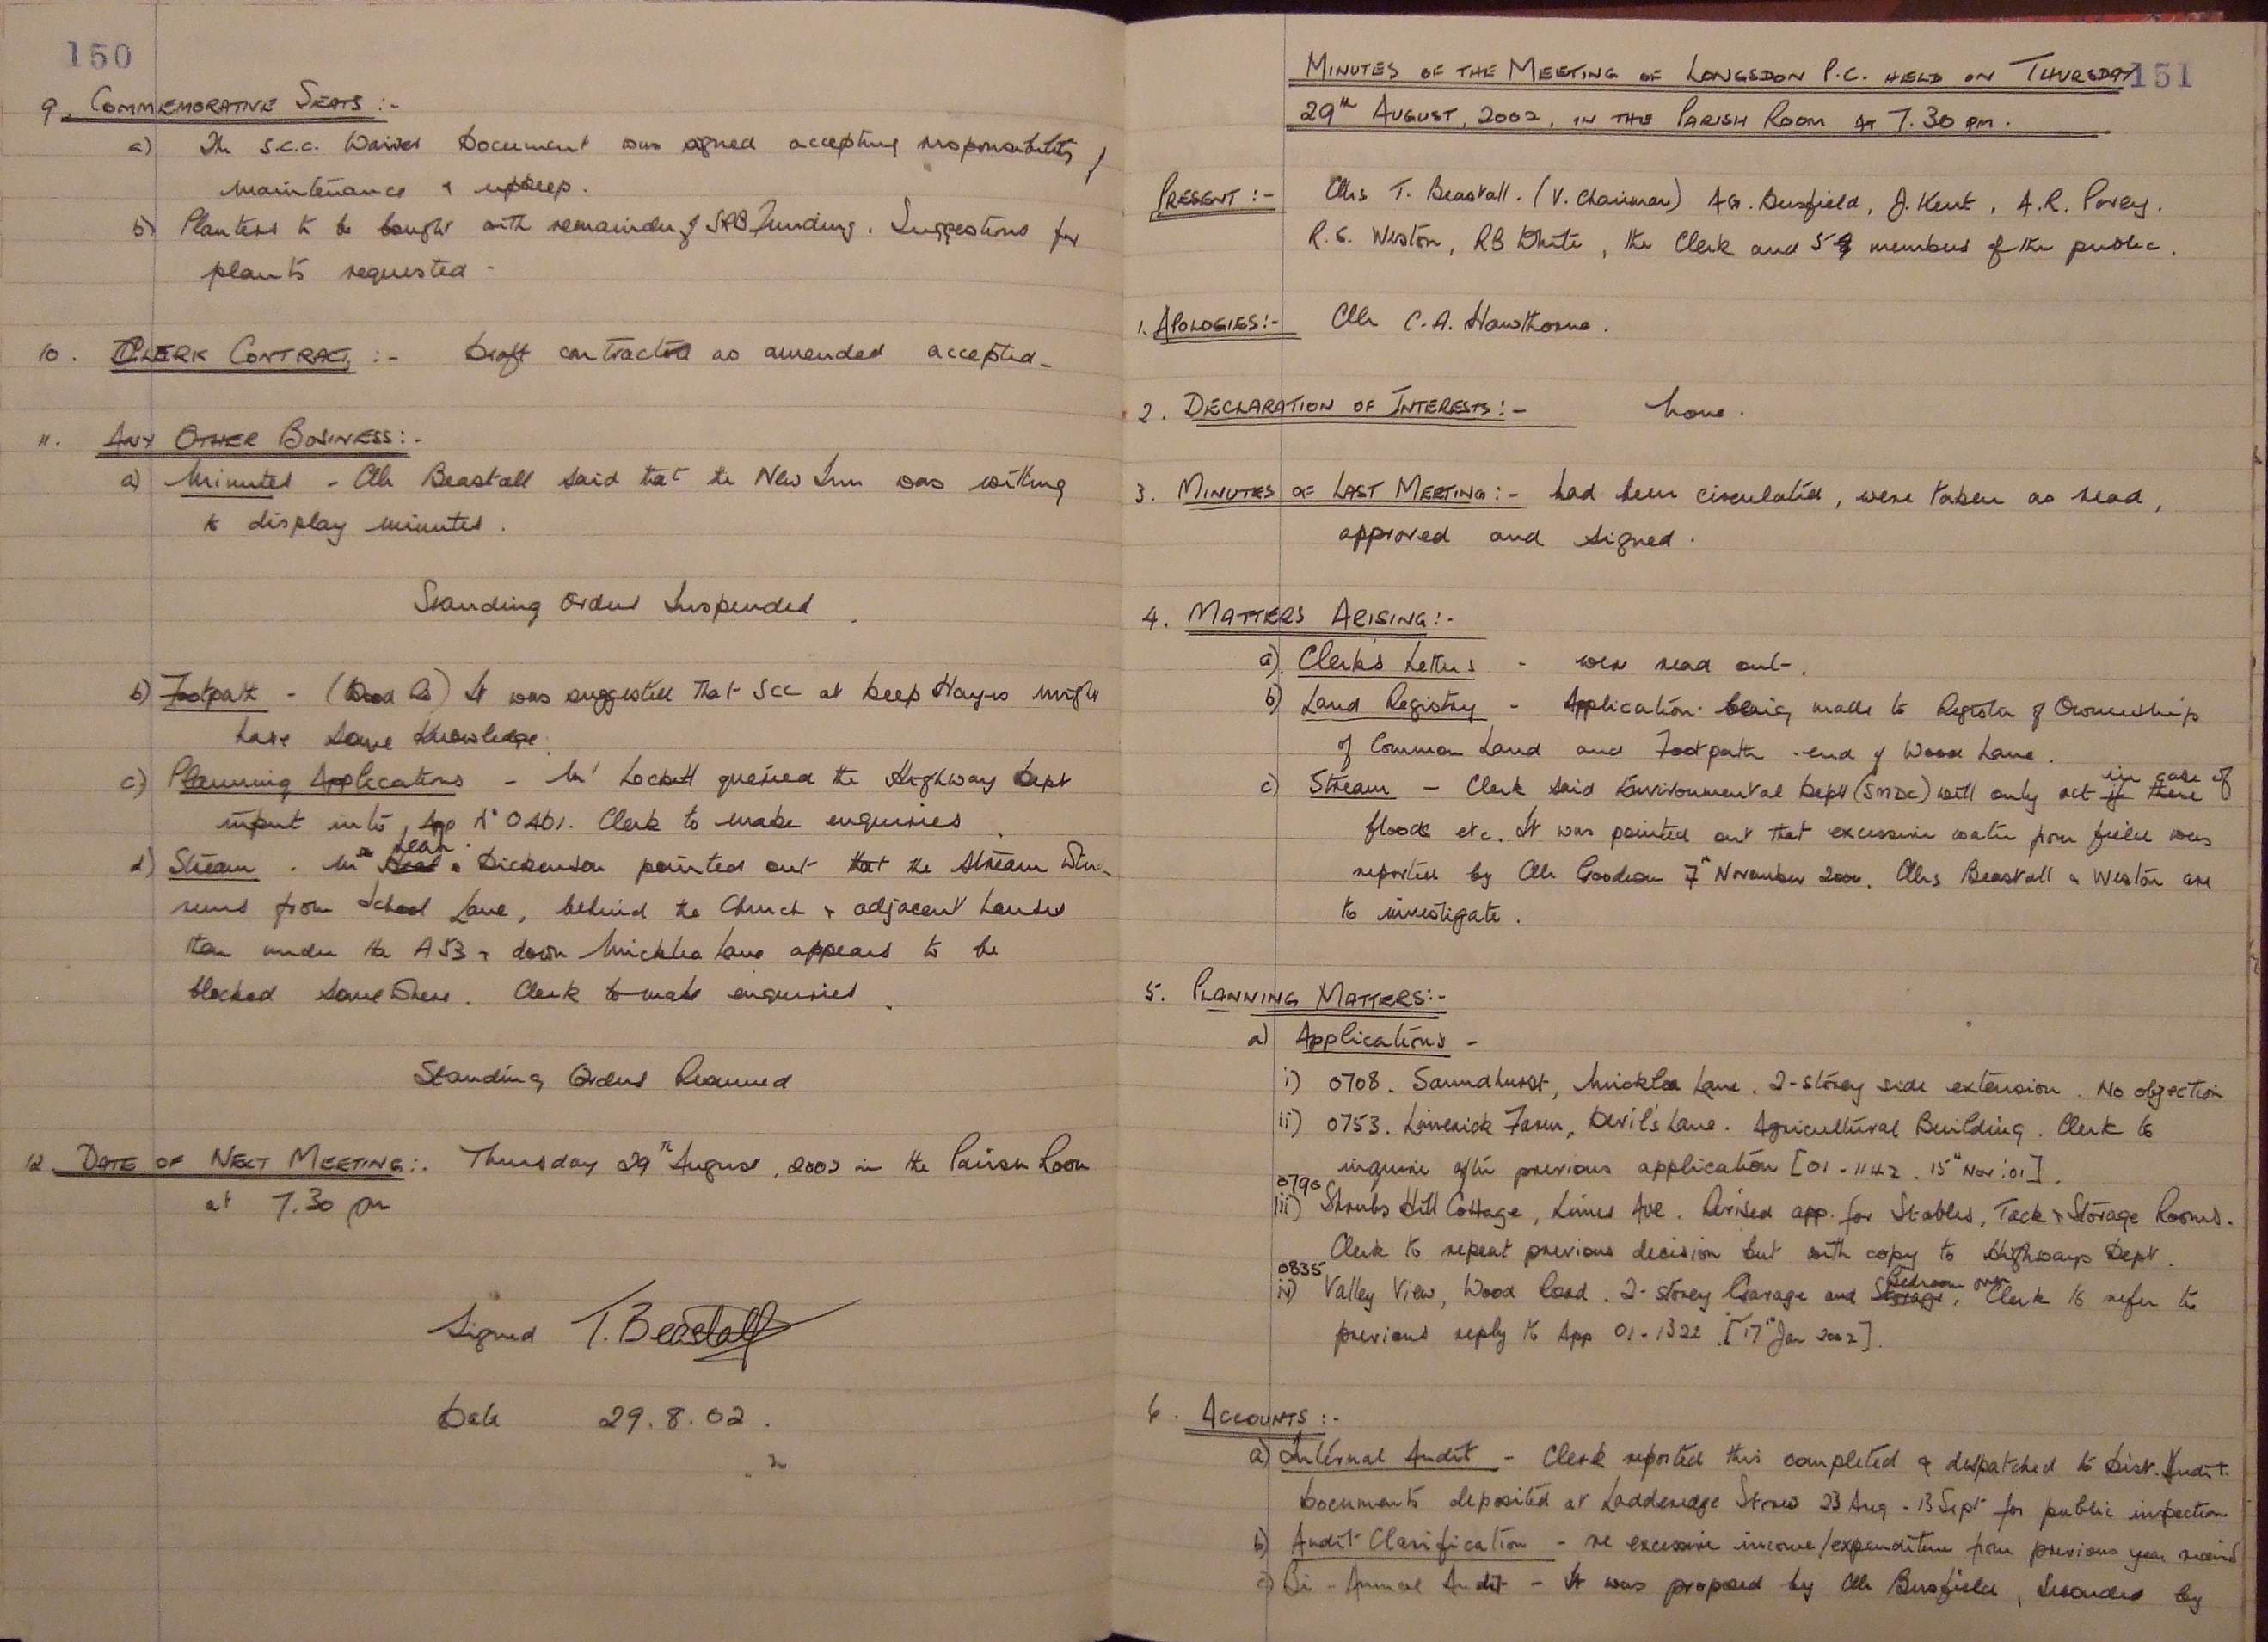 150
9. COMMEMORATIVE SEATS :-
a) The S.C.C. Waiver Document was signed accepting responsibility of
maintenance & upkeep.
b) Planters to be bought with remainder of funding. Suggestions for
plants requested -
10. CLERK CONTRACT :- Draft contract as amended accepted.
11. ANY OTHER BUSINESS :-
a) Minutes - Cllr Beastall said that the New Inn was willing
to display minutes.
Standing Orders Suspended.
b) Footpath - (Wood ) It was suggested that SCC at Deep Hayes might
have some knowledge.
c) Planning Applications - Mr Lockett queried the Highway Dept
input into App No 0461. Clerk to make enquiries.
d) Stream. Mr Dean Dickenson pointed out that the stream which
runs from School Lane, behind the Church & adjacent houses
then under the A53 & down Micklea Lane appears to be
blocked somewhere. Clerk to make enquiries.
Standing Orders Resumed
12. DATE OF NEXT MEETING :- Thursday 29th August, 2002 in the Parish Room
at 7.30 pm
Signed T. Beastall
Date 29.8.02.
151
MINUTES OF THE MEETING OF LONGSDON P.C. HELD ON THURSDAY
29th AUGUST, 2002, IN THE PARISH ROOM AT 7.30 PM.
PRESENT :- Cllrs T. Beastall. (V. Chairman) AG. Busfield, J. Kent, A.R. Povey.
R.S. Weston, RB White, the Clerk and 5 members of the public.
1. APOLOGIES :- Cllr C.A. Hawthorne.
2. DECLARATION OF INTERESTS :- None.
3. MINUTES OF LAST MEETING :- had been circulated, were taken as read,
approved and signed.
4. MATTERS ARISING :-
a) Clerk's Letters - were read out.
b) Land Registry - Application being made to Register of Ownership
of Common Land and Footpath end of Wood Lane.
c) Stream - Clerk said Environmental Dept (SMDC) will only act if there in case of
floods etc. It was pointed out that excessive water from field was
reported by Cllr Goodson 7th November 2000. Cllrs Beastall & Weston are
to investigate.
5. PLANNING MATTERS :-
a) Applications -
i) 0708. Saundhurst, Micklea Lane. 2-storey side extension. No objection
ii) 0753. Limerick Farm, Devil's Lane. Agricultural Building. Clerk to
inquire after previous application [01-1142. 15th Nov '01].
0790
iii) Shrubs Hill Cottage, Limes Ave. Revised app. for Stables, Tack & Storage Rooms.
Clerk to repeat previous decision but with copy to Highways Dept.
0835
iv) Valley View, Wood Road. 2-storey Garage and Storage, Bedroom over Clerk to refer to
previous reply to App 01-1322 [17th Jan 2002].
6. ACCOUNTS :-
a) Internal Audit - Clerk reported this completed & despatched to Dist. Audit.
Documents deposited at Ladderedge Stores 23 Aug - 13 Sept for public inspection
b) Audit Clarification - re excessive income/expenditure from previous year
c) Bi-Annual Audit - It was proposed by Cllr Busfield, seconded by